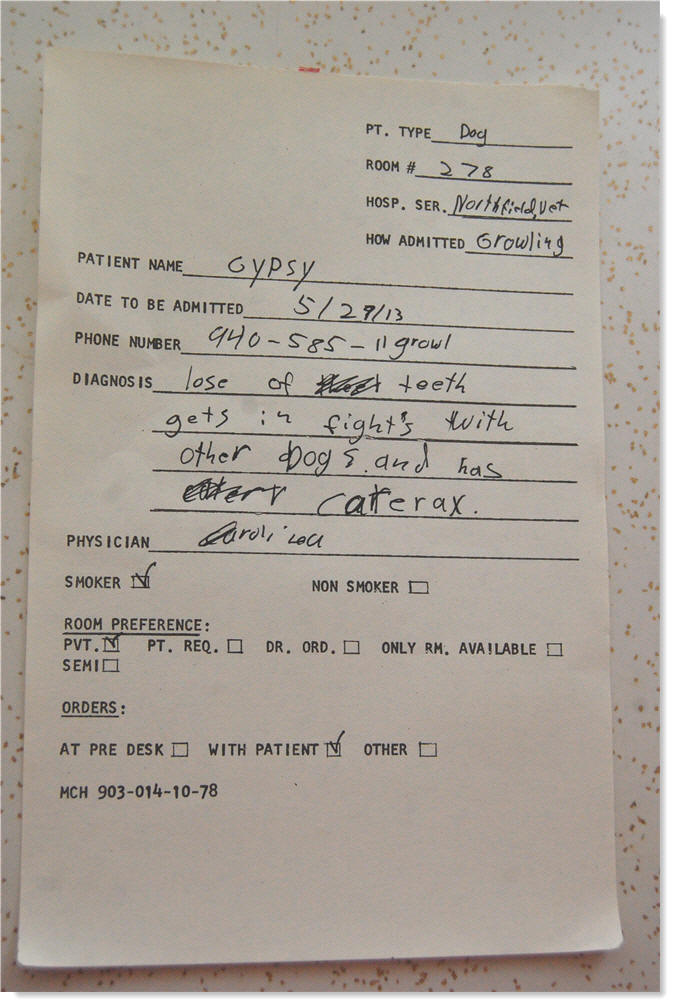 PT. TYPE Dog
ROOM # 278
HOSP. SER. Northfield, Vet
HOW ADMITTED Growling
PATIENT NAME GYPSY
DATE TO BE ADMITTED 5/29/13
PHONE NUMBER 940-585-11growl
DIAGNOSIS lose of teeth
gets in fight's with
other Dogs. and has
caterax.
PHYSICIAN
SMOKER ☑ NON SMOKER ☐
ROOM PREFERENCE:
PVT. ☑ PT. REQ. ☐ DR. ORD. ☐ ONLY RM. AVAILABLE ☐
SEMI ☐
ORDERS:
AT PRE DESK ☐ WITH PATIENT ☑ OTHER ☐
MCH 903-014-10-78